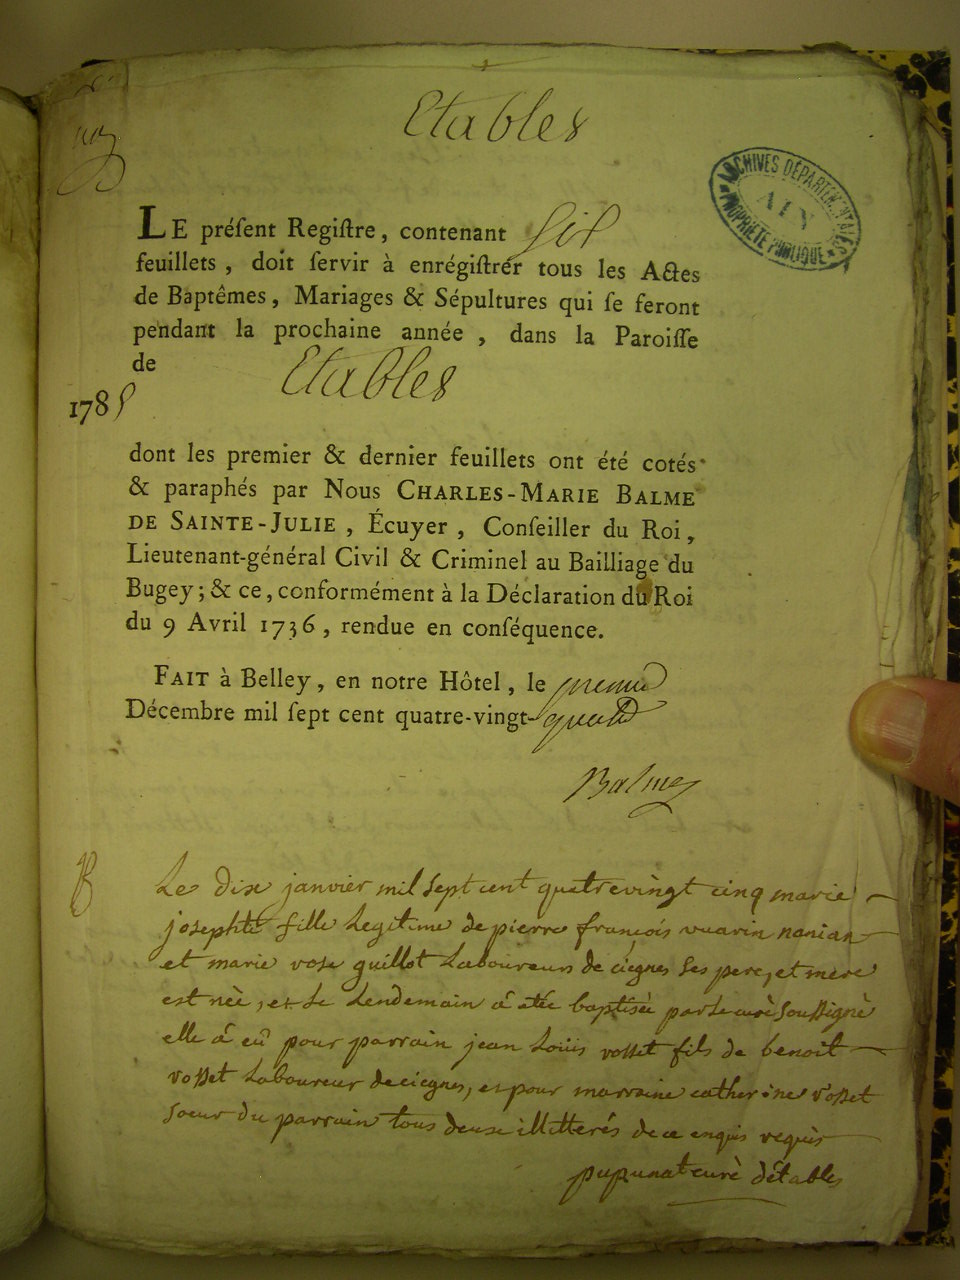 Etables
ARCHIVES DÉPARTEMENTALES
AIN
PROPRIÉTÉ PUBLIQUE
LE préſent Regiſtre, contenant Six
feuillets, doit ſervir à enrégiſtrer tous les Actes
de Baptêmes, Mariages & Sépultures qui ſe feront
pendant la prochaine année, dans la Paroiſſe
de Etables
1785
dont les premier & dernier feuillets ont été cotés
& paraphés par Nous CHARLES-MARIE BALME
DE SAINTE-JULIE, Écuyer, Conſeiller du Roi,
Lieutenant-général Civil & Criminel au Bailliage du
Bugey; & ce, conformément à la Déclaration du Roi
du 9 Avril 1736, rendue en conſéquence.
FAIT à Belley, en notre Hôtel, le premier
Décembre mil ſept cent quatre-vingt-quatre
Balme
B
Le dix janvier mil sept cent quatrevingt cinq marie
josephte fille Legitime de pierre francois vuarin nanian
et marie rose guillot Laboureurs de ciegnes ses pere, et mere
est néè, et Le Lendemain á étée baptiséè par Le curè soussignè
elle á eû pour parrain jean Loüis rosset fils de benoit
rosset Laboureur de ciegnes, et pour marraine catherine rosset
soeur du parrain tous deux illitterés de ce enquis requis
pupunat curè détables